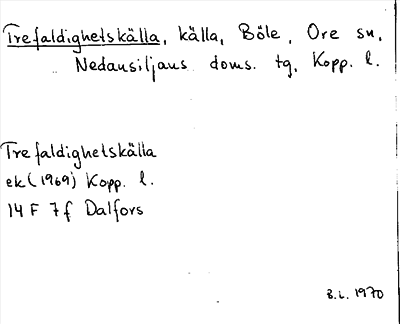 Trefaldighetskälla, källa, Böle, Ore sn,
Nedansiljans doms. tg, Kopp. l.
Trefaldighetskälla
ek (1969) Kopp. l.
14 F 7 f Dalfors
B.L. 1970